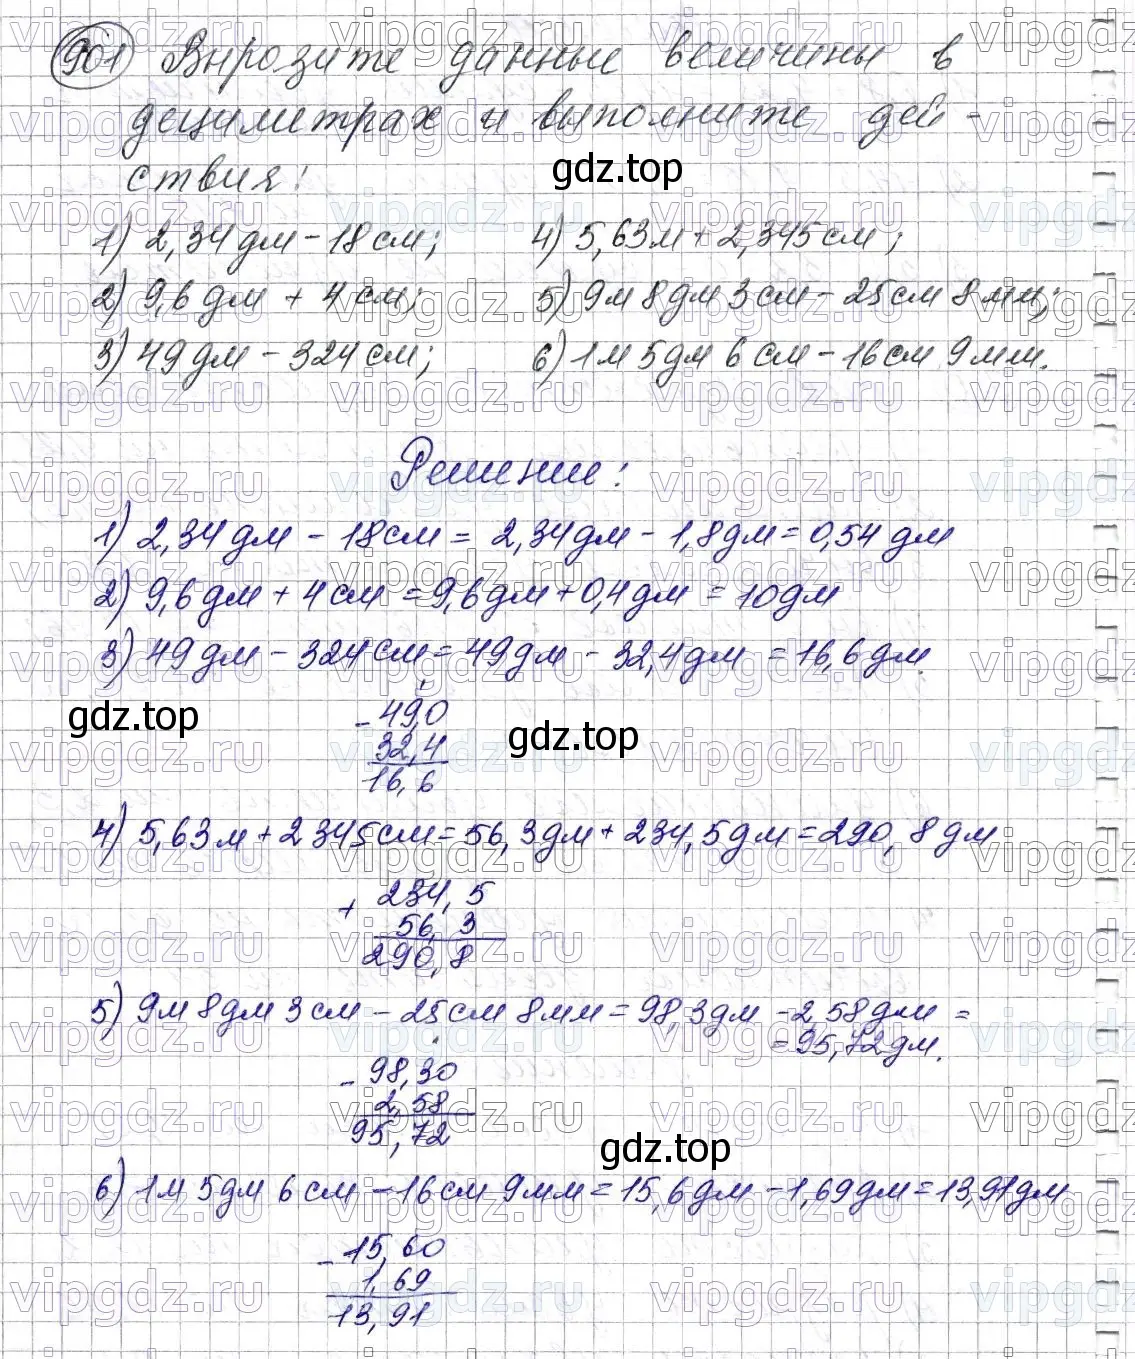 901 Выразите данные величины в
дециметрах и выполните дей-
ствия:
gdz.top
1) 2,34 дм - 18 см; 4) 5,63 м + 2,345 см;
2) 9,6 дм + 4 см; 5) 9 м 8 дм 3 см - 25 см 8 мм;
3) 49 дм - 324 см; 6) 1 м 5 дм 6 см - 16 см 9 мм.
Решение:
1) 2,34 дм - 18 см = 2,34 дм - 1,8 дм = 0,54 дм
2) 9,6 дм + 4 см = 9,6 дм + 0,4 дм = 10 дм
3) 49 дм - 324 см = 49 дм - 32,4 дм = 16,6 дм.
gdz.top
- 49,0
32,4
16,6
gdz.top
4) 5,63 м + 2345 см = 56,3 дм + 234,5 дм = 290,8 дм
+ 234,5
56,3
290,8
5) 9 м 8 дм 3 см - 25 см 8 мм = 98,3 дм - 2,58 дм =
= 95,72 дм.
- 98,30
2,58
95,72
gdz.top
6) 1 м 5 дм 6 см - 16 см 9 мм = 15,6 дм - 1,69 дм = 13,91 дм
- 15,60
1,69
13,91
vipgdz.ru